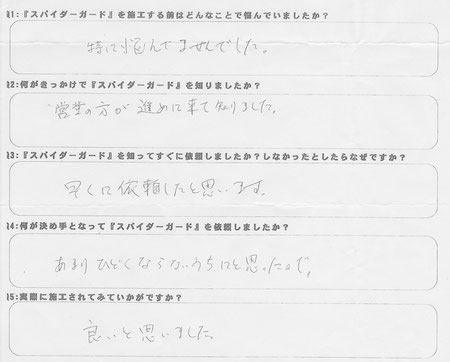 Q1:『スパイダーガード』を施工する前はどんなことで悩んでいましたか？
特に悩んでませんでした。
Q2:何がきっかけで『スパイダーガード』を知りましたか？
営業の方が進めに来て知りました。
Q3:『スパイダーガード』を知ってすぐに依頼しましたか？しなかったとしたらなぜですか？
早くに依頼したと思います。
Q4:何が決め手となって『スパイダーガード』を依頼しましたか？
あまりひどくならないうちにと思ったので。
Q5:実際に施工されてみていかがですか？
良いと思いました。